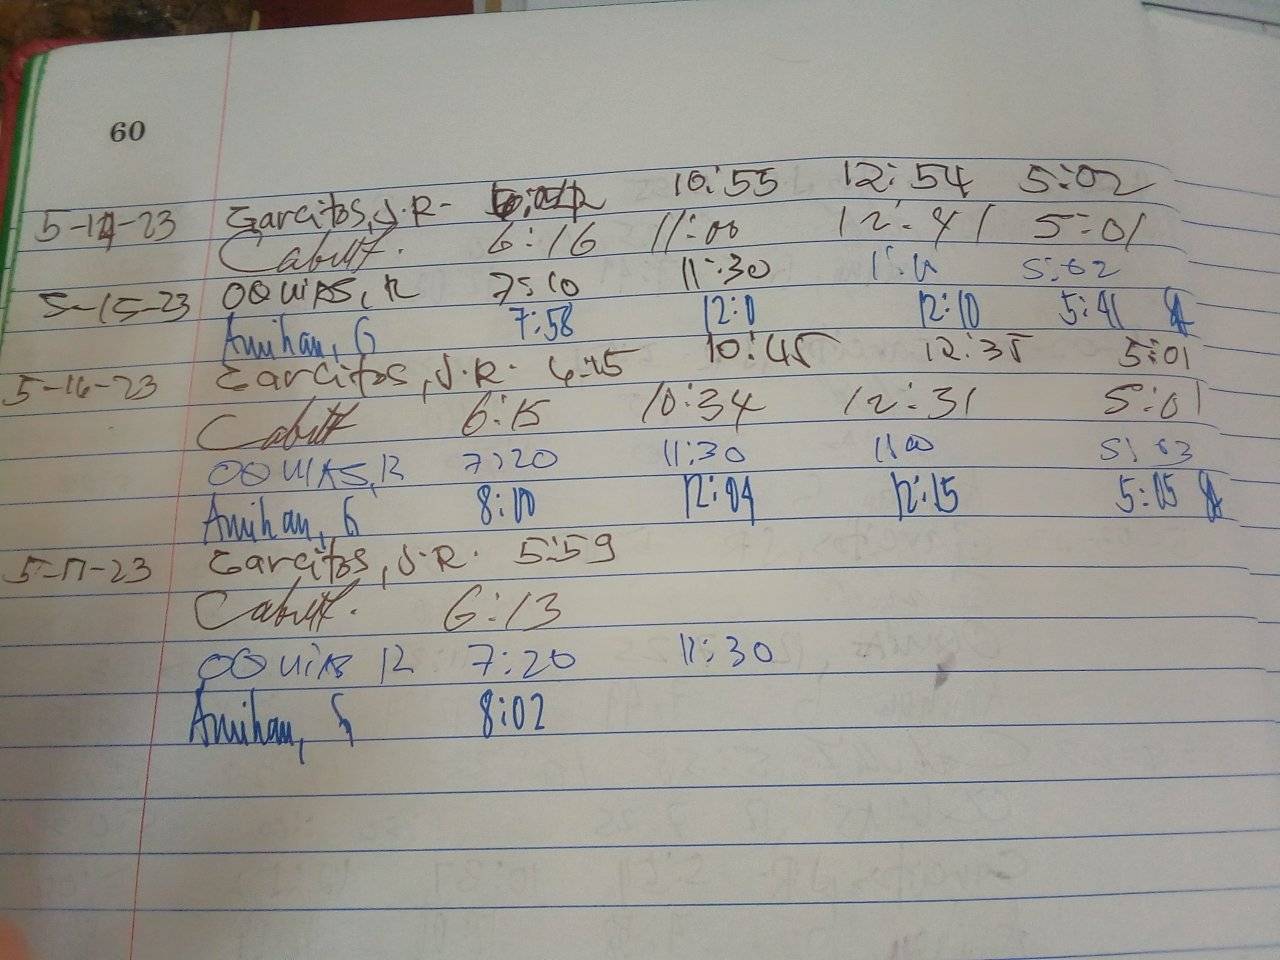 60
5-14-23 Garcitos, J.R. - 10:55 12:54 5:02
6:16 11:00 12:41 5:01
5-15-23 OQUIAS, R 7:10 11:30 5:02
Amihan, G 7:58 12:10 5:41
5-16-23 Garcitos, J.R. 6:15 10:45 12:35 5:01
6:15 10:34 12:31 5:01
OQUIAS, R 7:20 11:30 1:00 5:03
Amihan, G 8:10 12:04 12:15 5:05
5-17-23 Garcitos, J.R. 5:59
6:13
OQUIAS R 7:20 11:30
Amihan, G 8:02